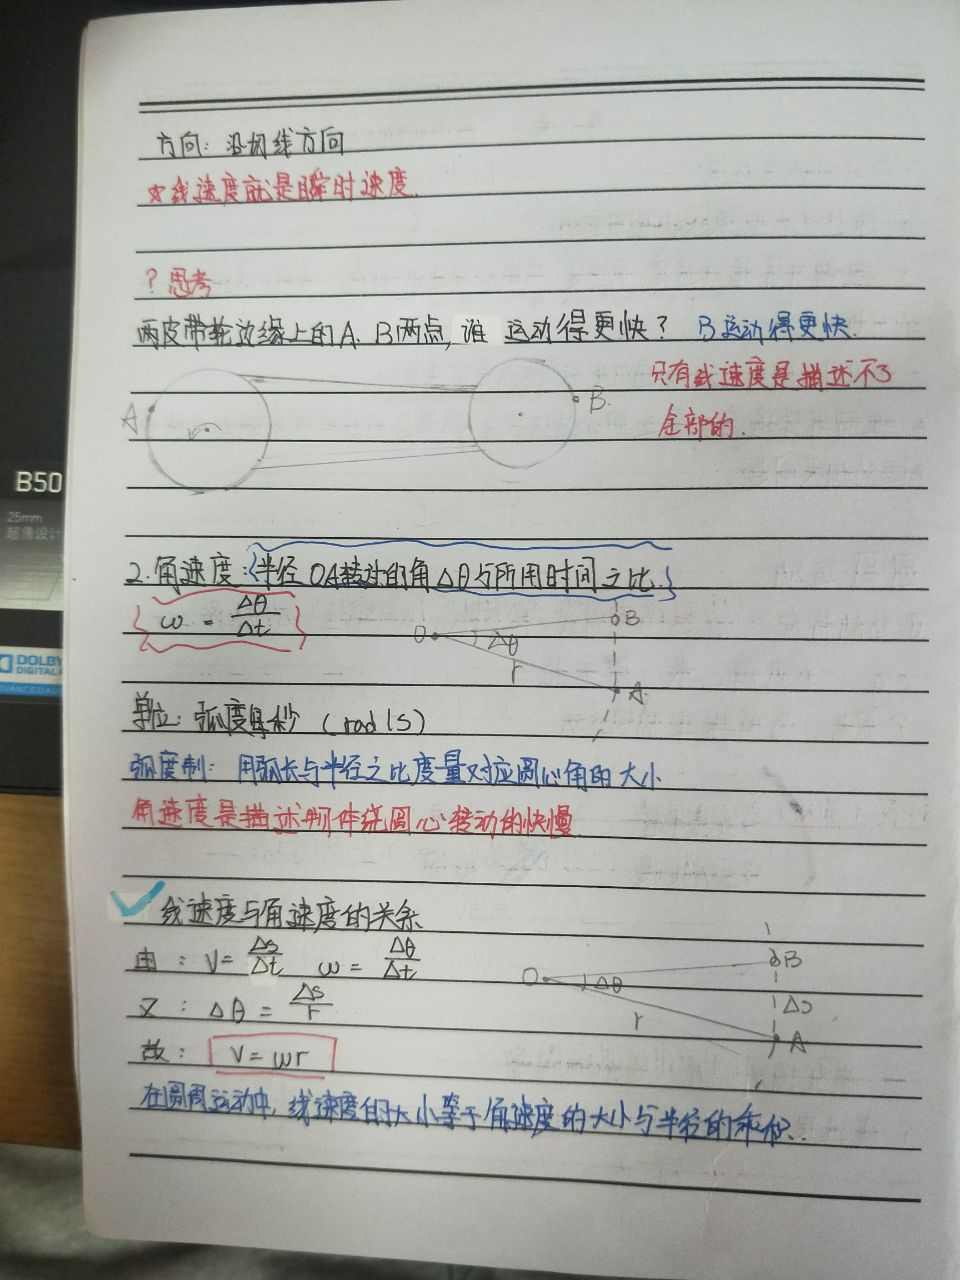 方向：沿切线方向
☆线速度就是瞬时速度.
？思考
两皮带轮边缘上的A、B两点，谁运动得更快？ B运动得更快.
只有线速度是描述不了
全部的.
A
B
B50
25mm
超薄设计
2.角速度：半径OA转过的角Δθ与所用时间之比.
ω = Δθ/Δt
O Δθ r B A
DOLBY
DIGITAL
单位：弧度每秒 (rad/s)
弧度制：用弧长与半径之比度量对应圆心角的大小
角速度是描述物体绕圆心转动的快慢
线速度与角速度的关系
由：V=Δs/Δt ω=Δθ/Δt
O Δθ r B Δs A
又：Δθ=Δs/r
故：V=ωr
在圆周运动中，线速度的大小等于角速度的大小与半径的乘积.